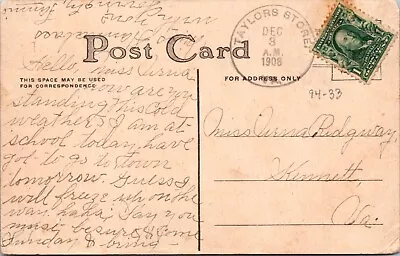 Post Card
THIS SPACE MAY BE USED
FOR CORRESPONDENCE
FOR ADDRESS ONLY
TAYLORS STORE
DEC
3
A.M.
1908
94-33
Hello, Miss Verna
how are you
standing this cold
weather? I am at
school today, have
got to go to town
tomorrow. Guess I
will freeze up on the
way. haha. Say you
must be sure & come
Sunday & bring
Miss Verna Ridgway,
Kennett,
Va.